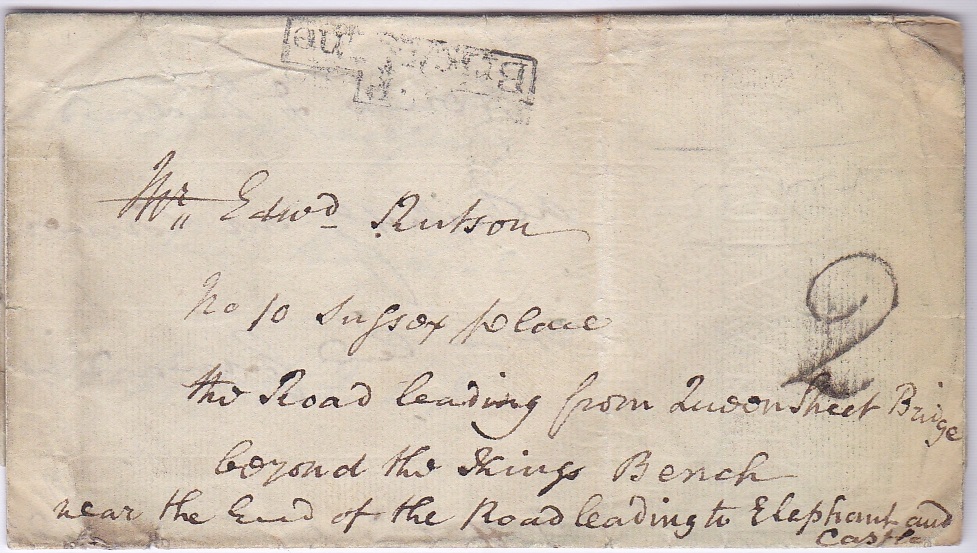 Mr Edwd Rutson
No 10 Sussex place
the Road leading from Queen Street Bridge
2
beyond the Kings Bench
near the End of the Road leading to Elephant and
Castle